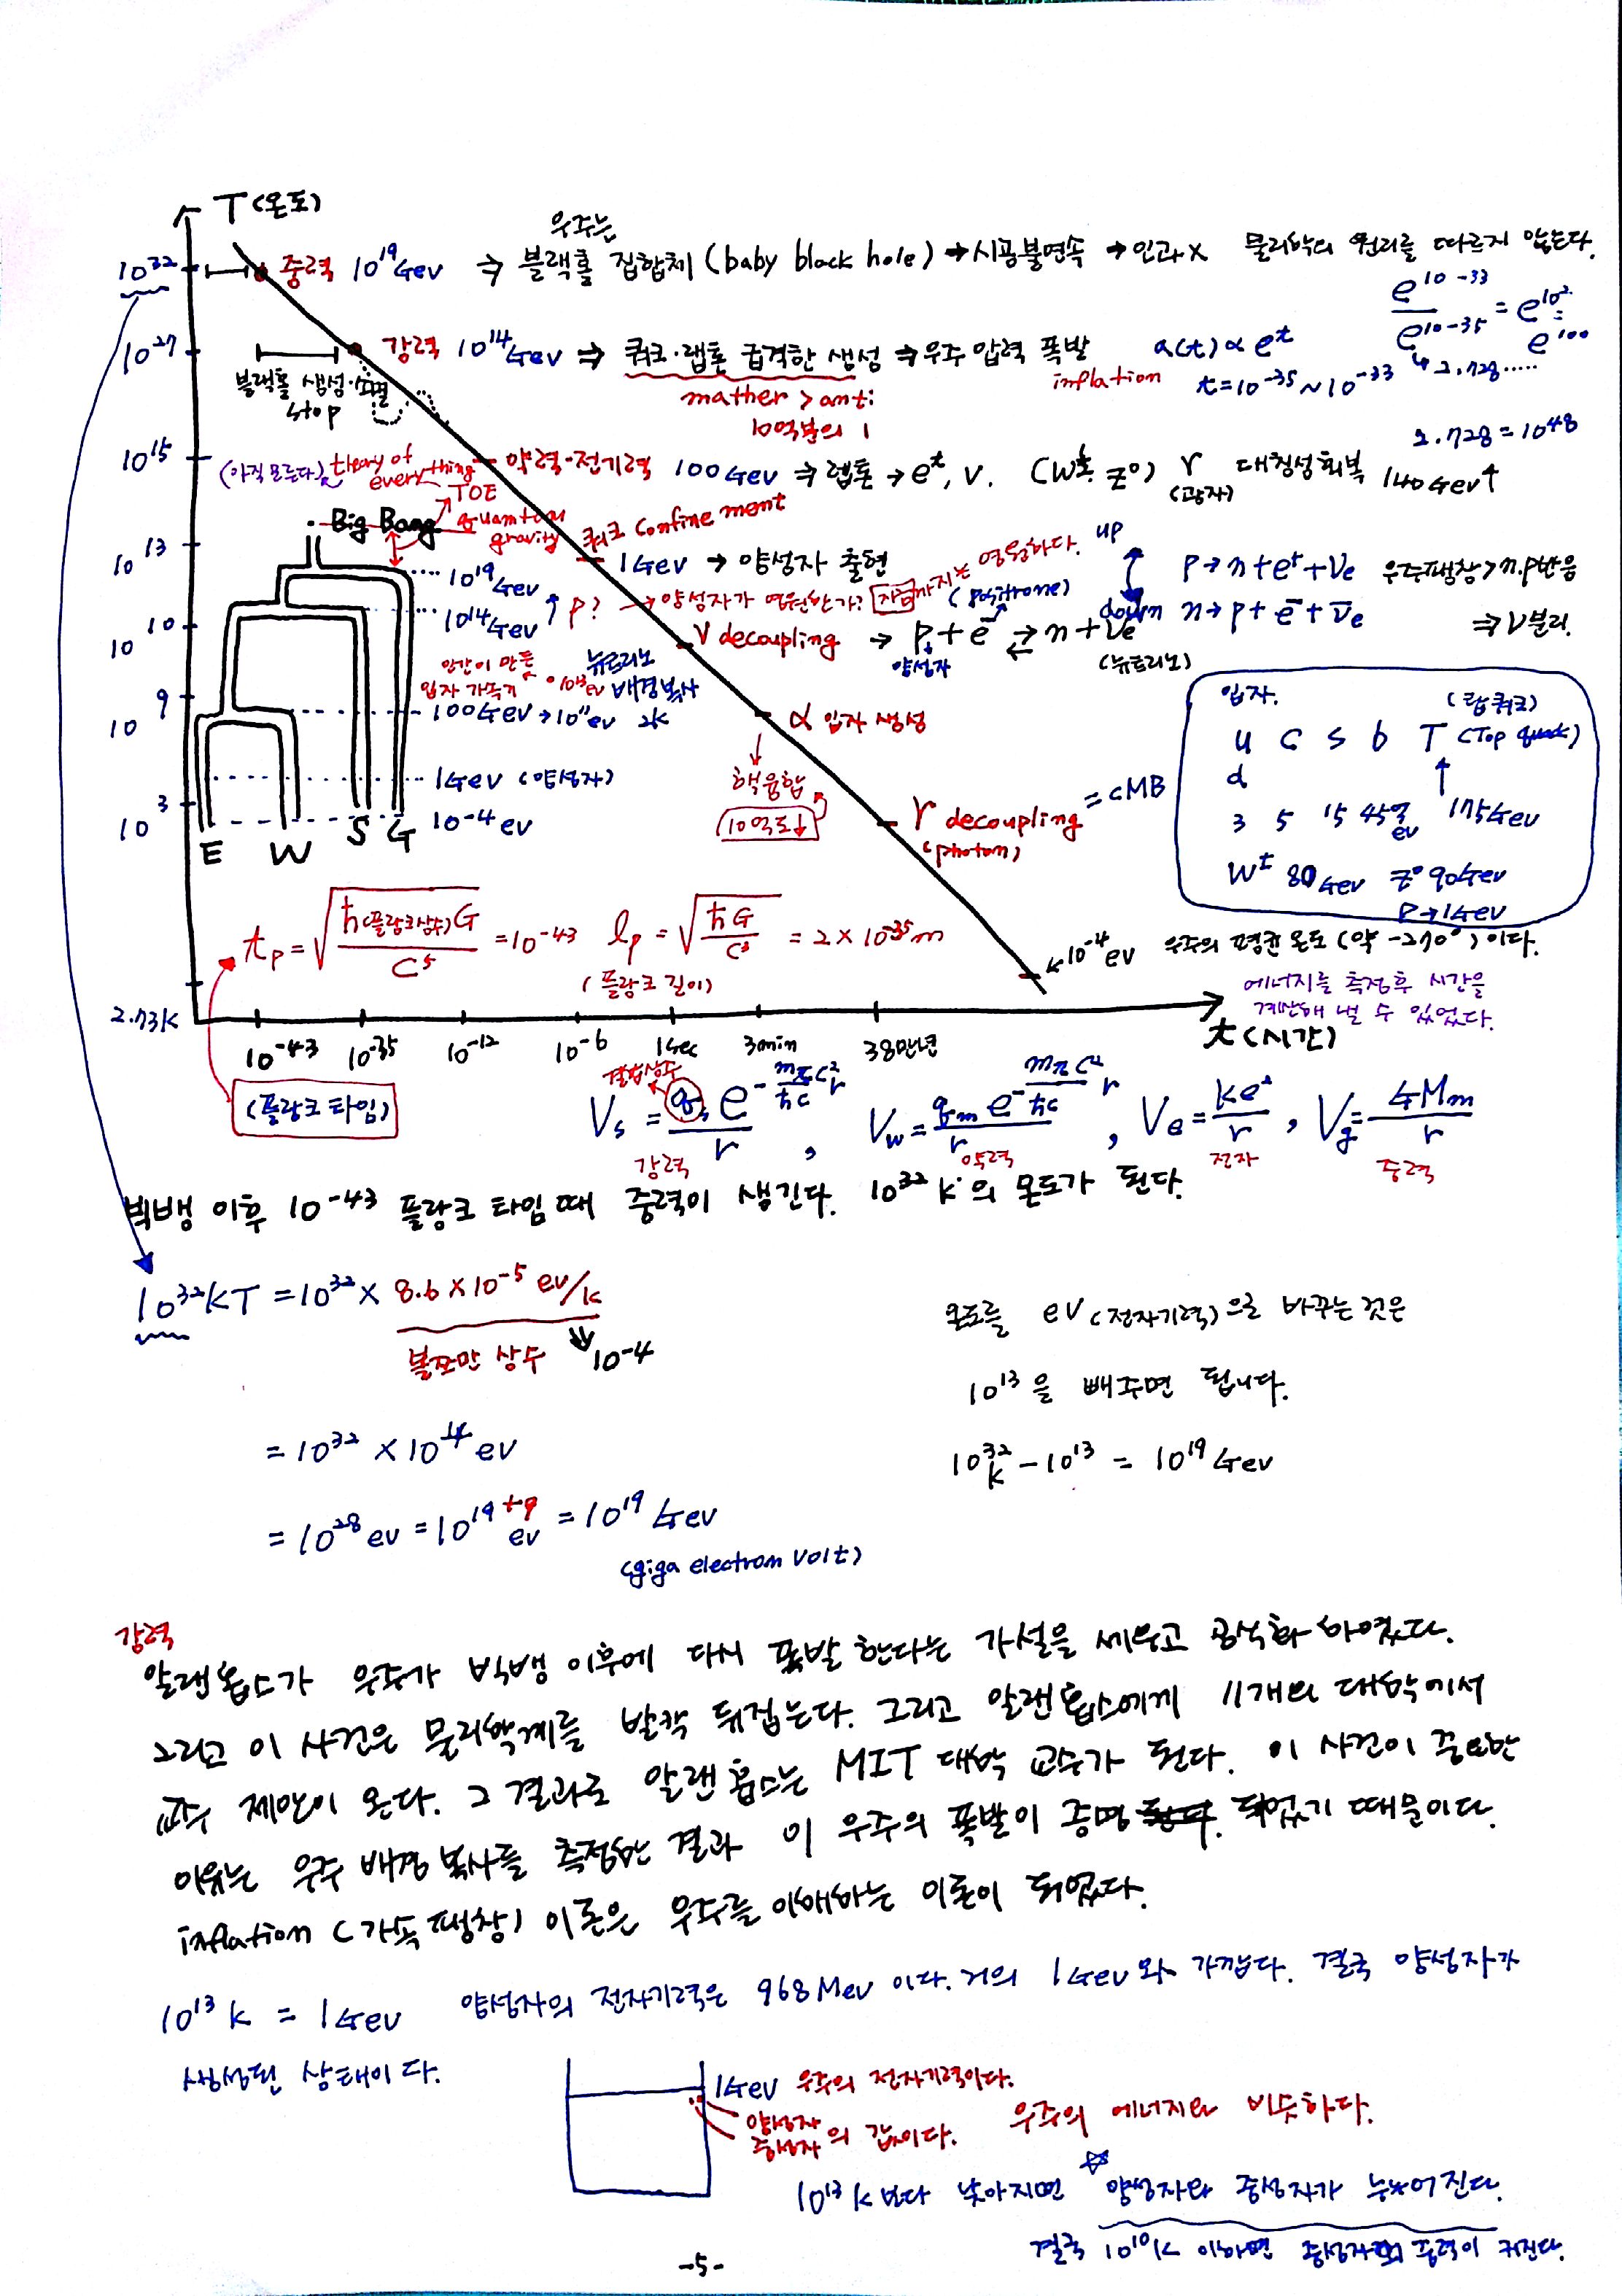 T (온도)
우주는
10³² 중력 10¹⁹Gev ⇒ 블랙홀 집합체 (baby black hole) → 시공불연속 → 인과 x 물리학의 원리를 따르지 않는다.
e^10-33 / e^10-35 = e^10² = e^100
10²⁷ 강력 10¹⁴Gev ⇒ 쿼크·랩톤 급격한 생성 ⇒ 우주 압력 폭발 a(t) ∝ e^t
inflation t=10⁻³⁵ ~ 10⁻³³ ↳ 2.728.....
블랙홀 생성·소멸
stop
mather > anti
10억분의 1
2.728 = 10⁴⁸
10¹⁵ (아직 모른다) theory of every thing 약력·전기력 100Gev ⇒ 랩톤 → e^±, ν. (W^± Z⁰) γ (광자) 대칭성회복 140Gev↑
TOE
Big Bang quantum gravity
쿼크 confinement
10¹³ 1Gev → 양성자 출현
10¹⁹Gev
10¹⁴Gev ↑ p? → 양성자가 영원한가? 지금까지는 영원하다.
up p → n + e⁺ + νe 우주팽창 > n.p반응
down n → p + e⁻ + ν̄e ⇒ ν분리.
(positrone)
10¹⁰ ν decoupling → p + e⁻ ⇄ n + νe
양성자 (뉴트리노)
인간이 만든 입자 가속기 · 10¹³ev
뉴트리노 배경복사 2k
10⁹ 100Gev → 10¹¹ev
α 입자 생성
1Gev (양성자)
핵융합
10억도↓
10³ 10⁻⁴ev
E W S G
γ decoupling = CMB
(photon)
입자. (탑쿼크)
u c s b T (Top quark)
d
3 5 15 45억ev 175Gev
W^± 80Gev Z⁰ 90Gev
P → 1Gev
tp = √(ħ(플랑크상수)G / C⁵) = 10⁻⁴³ lp = √(ħG / C³) = 2 × 10⁻³⁵m
(플랑크 길이)
10⁻⁴ev 우주의 평균온도 (약 -270°) 이다.
에너지를 측정후 시간을
계산해 낼 수 있었다.
2.73K
10⁻⁴³ 10⁻³⁵ 10⁻¹² 10⁻⁶ 1sec 3min 38만년 t (시간)
(플랑크 타임)
결합상수
Vs = gs e^(-mπC²/ħc r) / r , Vw = gm e^(-mπC²/ħc r) / r , Ve = ke² / r , Vg = GMm / r
강력 약력 전자 중력
빅뱅 이후 10⁻⁴³ 플랑크 타임때 중력이 생긴다. 10³² K의 온도가 된다.
10³²kT = 10³² × 8.6 × 10⁻⁵ ev/k
볼쯔만 상수 10⁻⁴
= 10³² × 10⁻⁴ ev
= 10²⁸ ev = 10¹⁹⁺⁹ ev = 10¹⁹ Gev
(giga electron volt)
온도를 ev (전자기력)으로 바꾸는 것은
10¹³을 빼주면 됩니다.
10³²k - 10¹³ = 10¹⁹ Gev
강력
알랜홉스가 우주가 빅뱅 이후에 다시 폭발 한다는 가설을 세우고 공식화 하였다.
그리고 이 사건은 물리학계를 발칵 뒤집는다. 그리고 알랜홉스에게 11개의 대학에서
교수 제안이 온다. 그 결과로 알랜홉스는 MIT 대학 교수가 된다. 이 사건이 중요한
이유는 우주 배경 복사를 측정한 결과 이 우주의 폭발이 증명 되었기 때문이다.
inflation (가속 팽창) 이론은 우주를 이해하는 이론이 되었다.
10¹³ k = 1Gev 양성자의 전자기력은 968Mev 이다. 거의 1Gev와 가깝다. 결국 양성자가
생성된 상태이다.
1Gev 우주의 전자기력이다.
양성자
중성자 의 값이다. 우주의 에너지와 비슷하다.
10¹³k 보다 낮아지면 ☆양성자와 중성자가 나뉘어진다.
결국 10¹⁰k 이하면 중성자의 이 커진다.
-5-